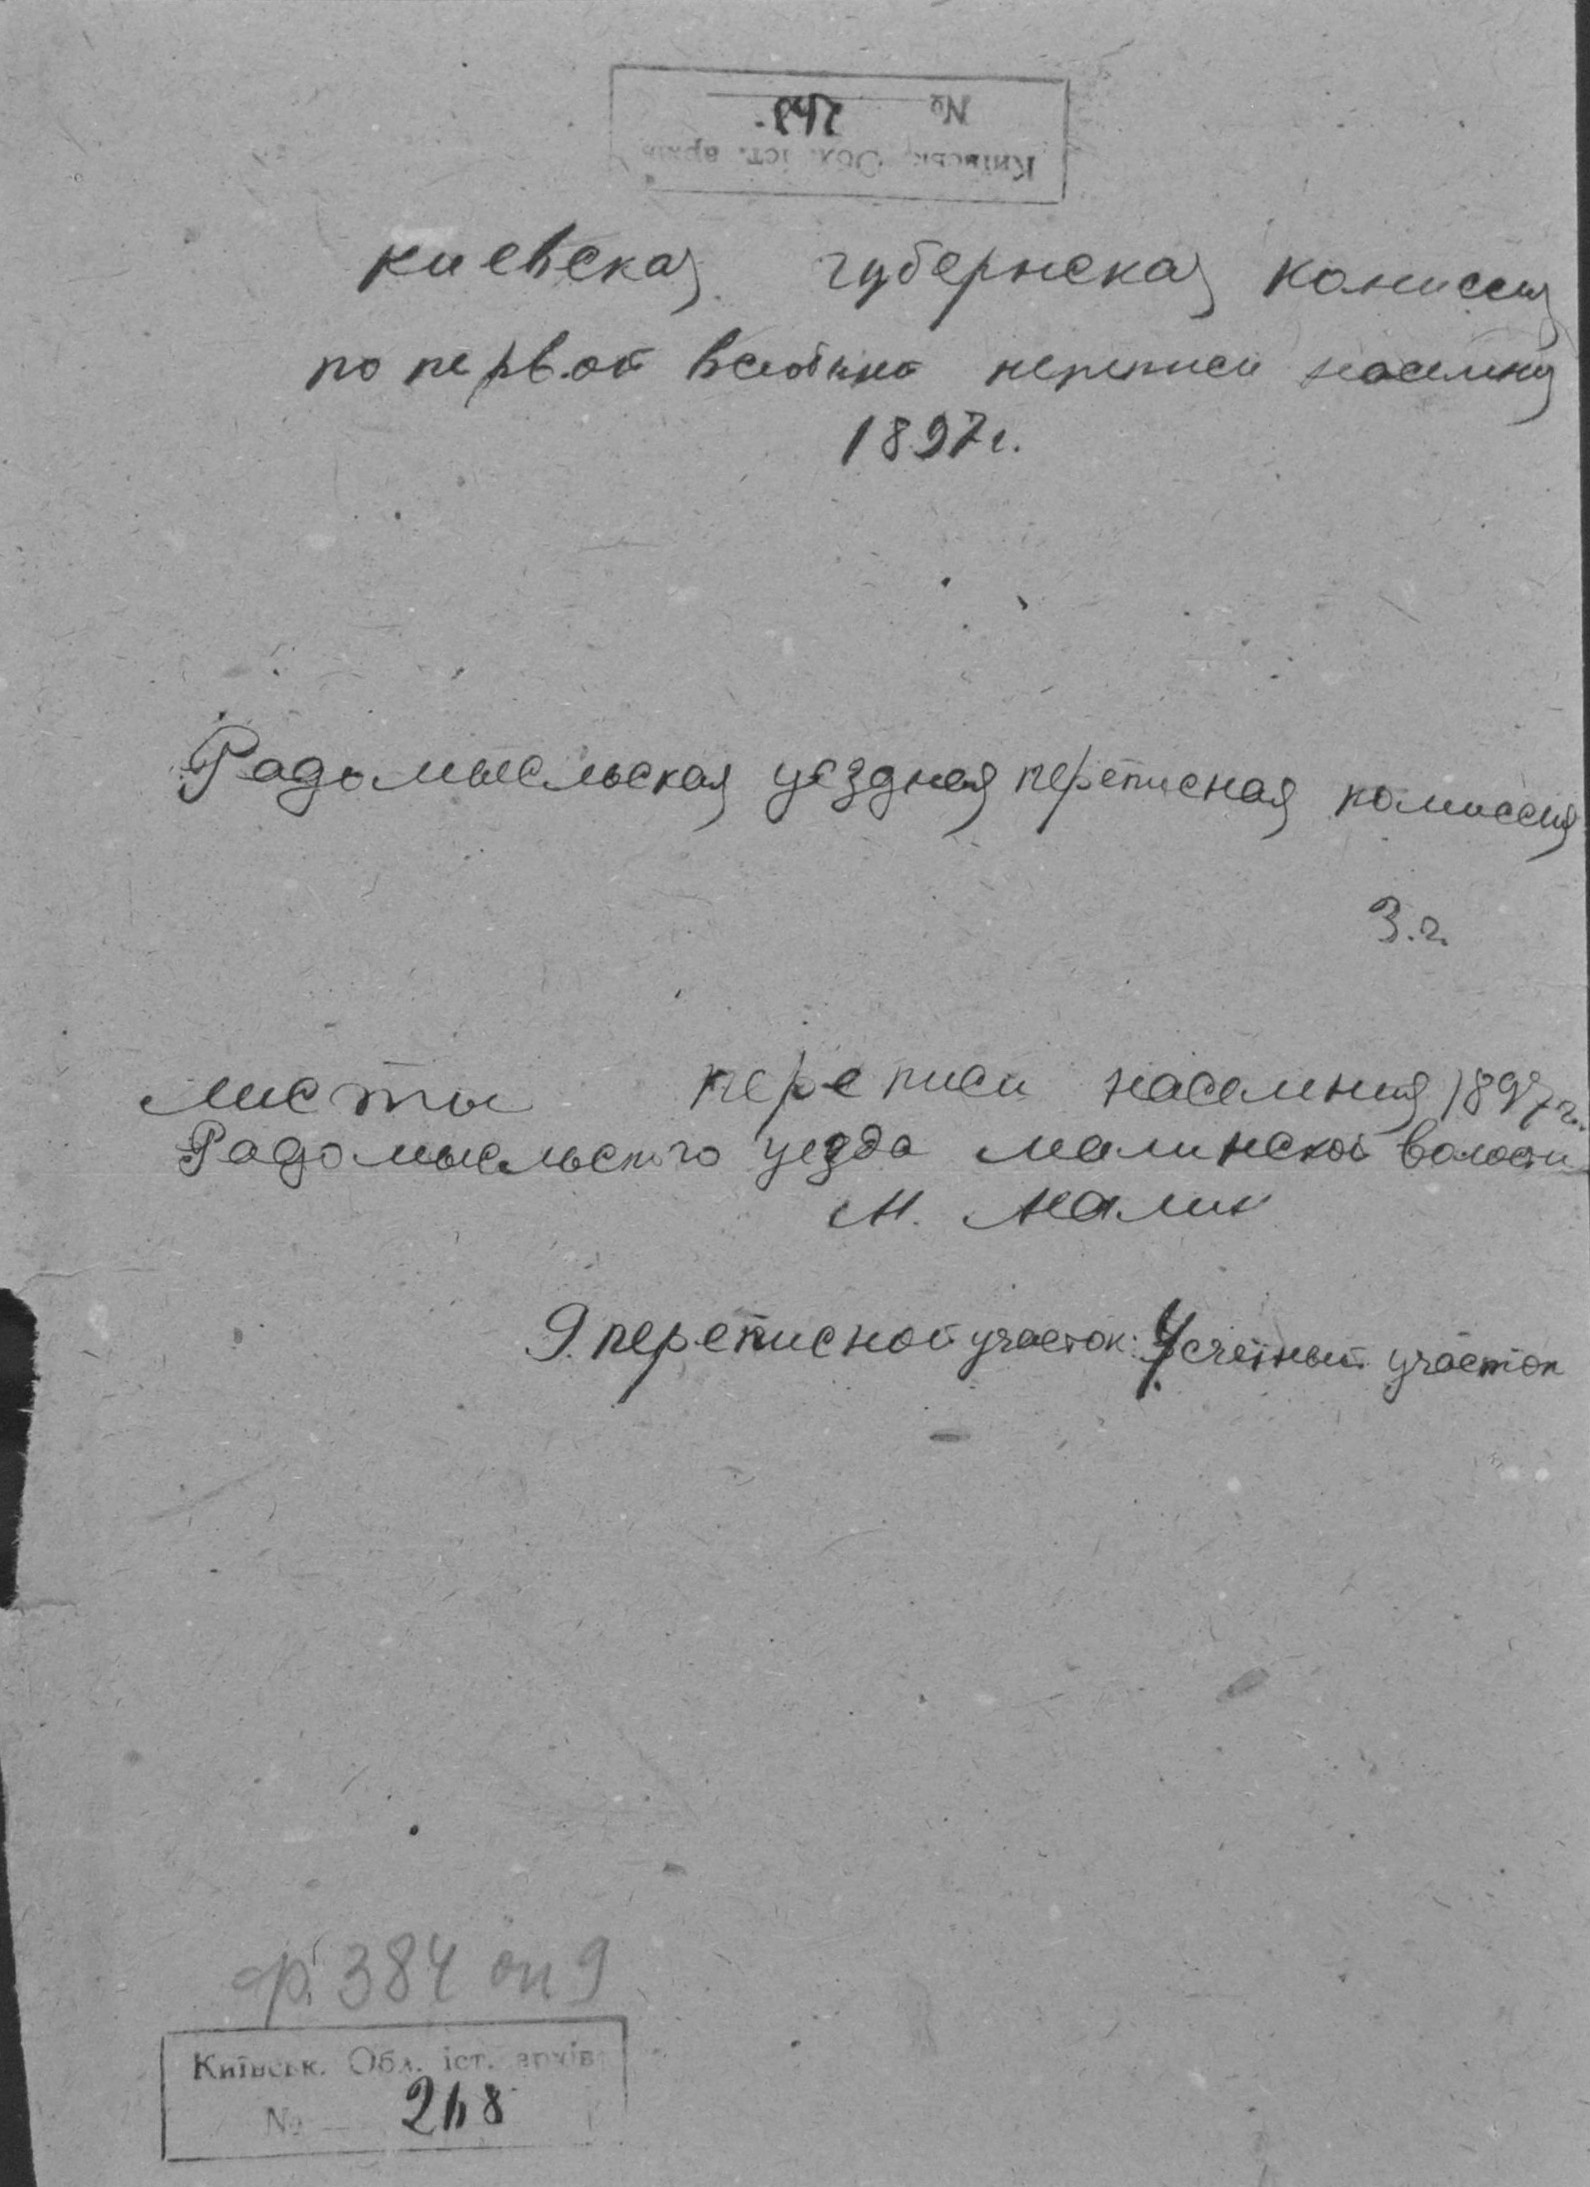 № 248
Київськ. Обл. іст. архів
киевская губернская комиссия
по перв.ой всеобщей переписи населения
1897г.
Радомысльская уездная переписная комиссия
3.г.
листы переписи населения 1897г.
Радомысльского уезда малинской волости
м. Малин
9. переписной участок. 4 счетный участок
ф. 384 оп 9
Київськ. Обл. іст. архів
№ 248